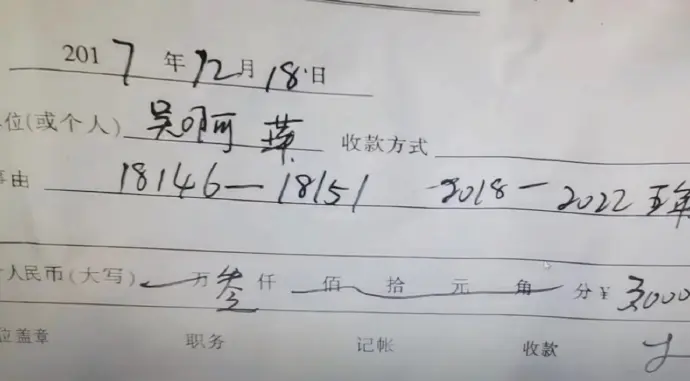 2017年12月18日
位(或个人) 吴 收款方式
由 18146—18151 2018—2022 五年
人民币(大写) 万叁仟 佰 拾 元 角 分¥3000
位盖章 职务 记帐 收款